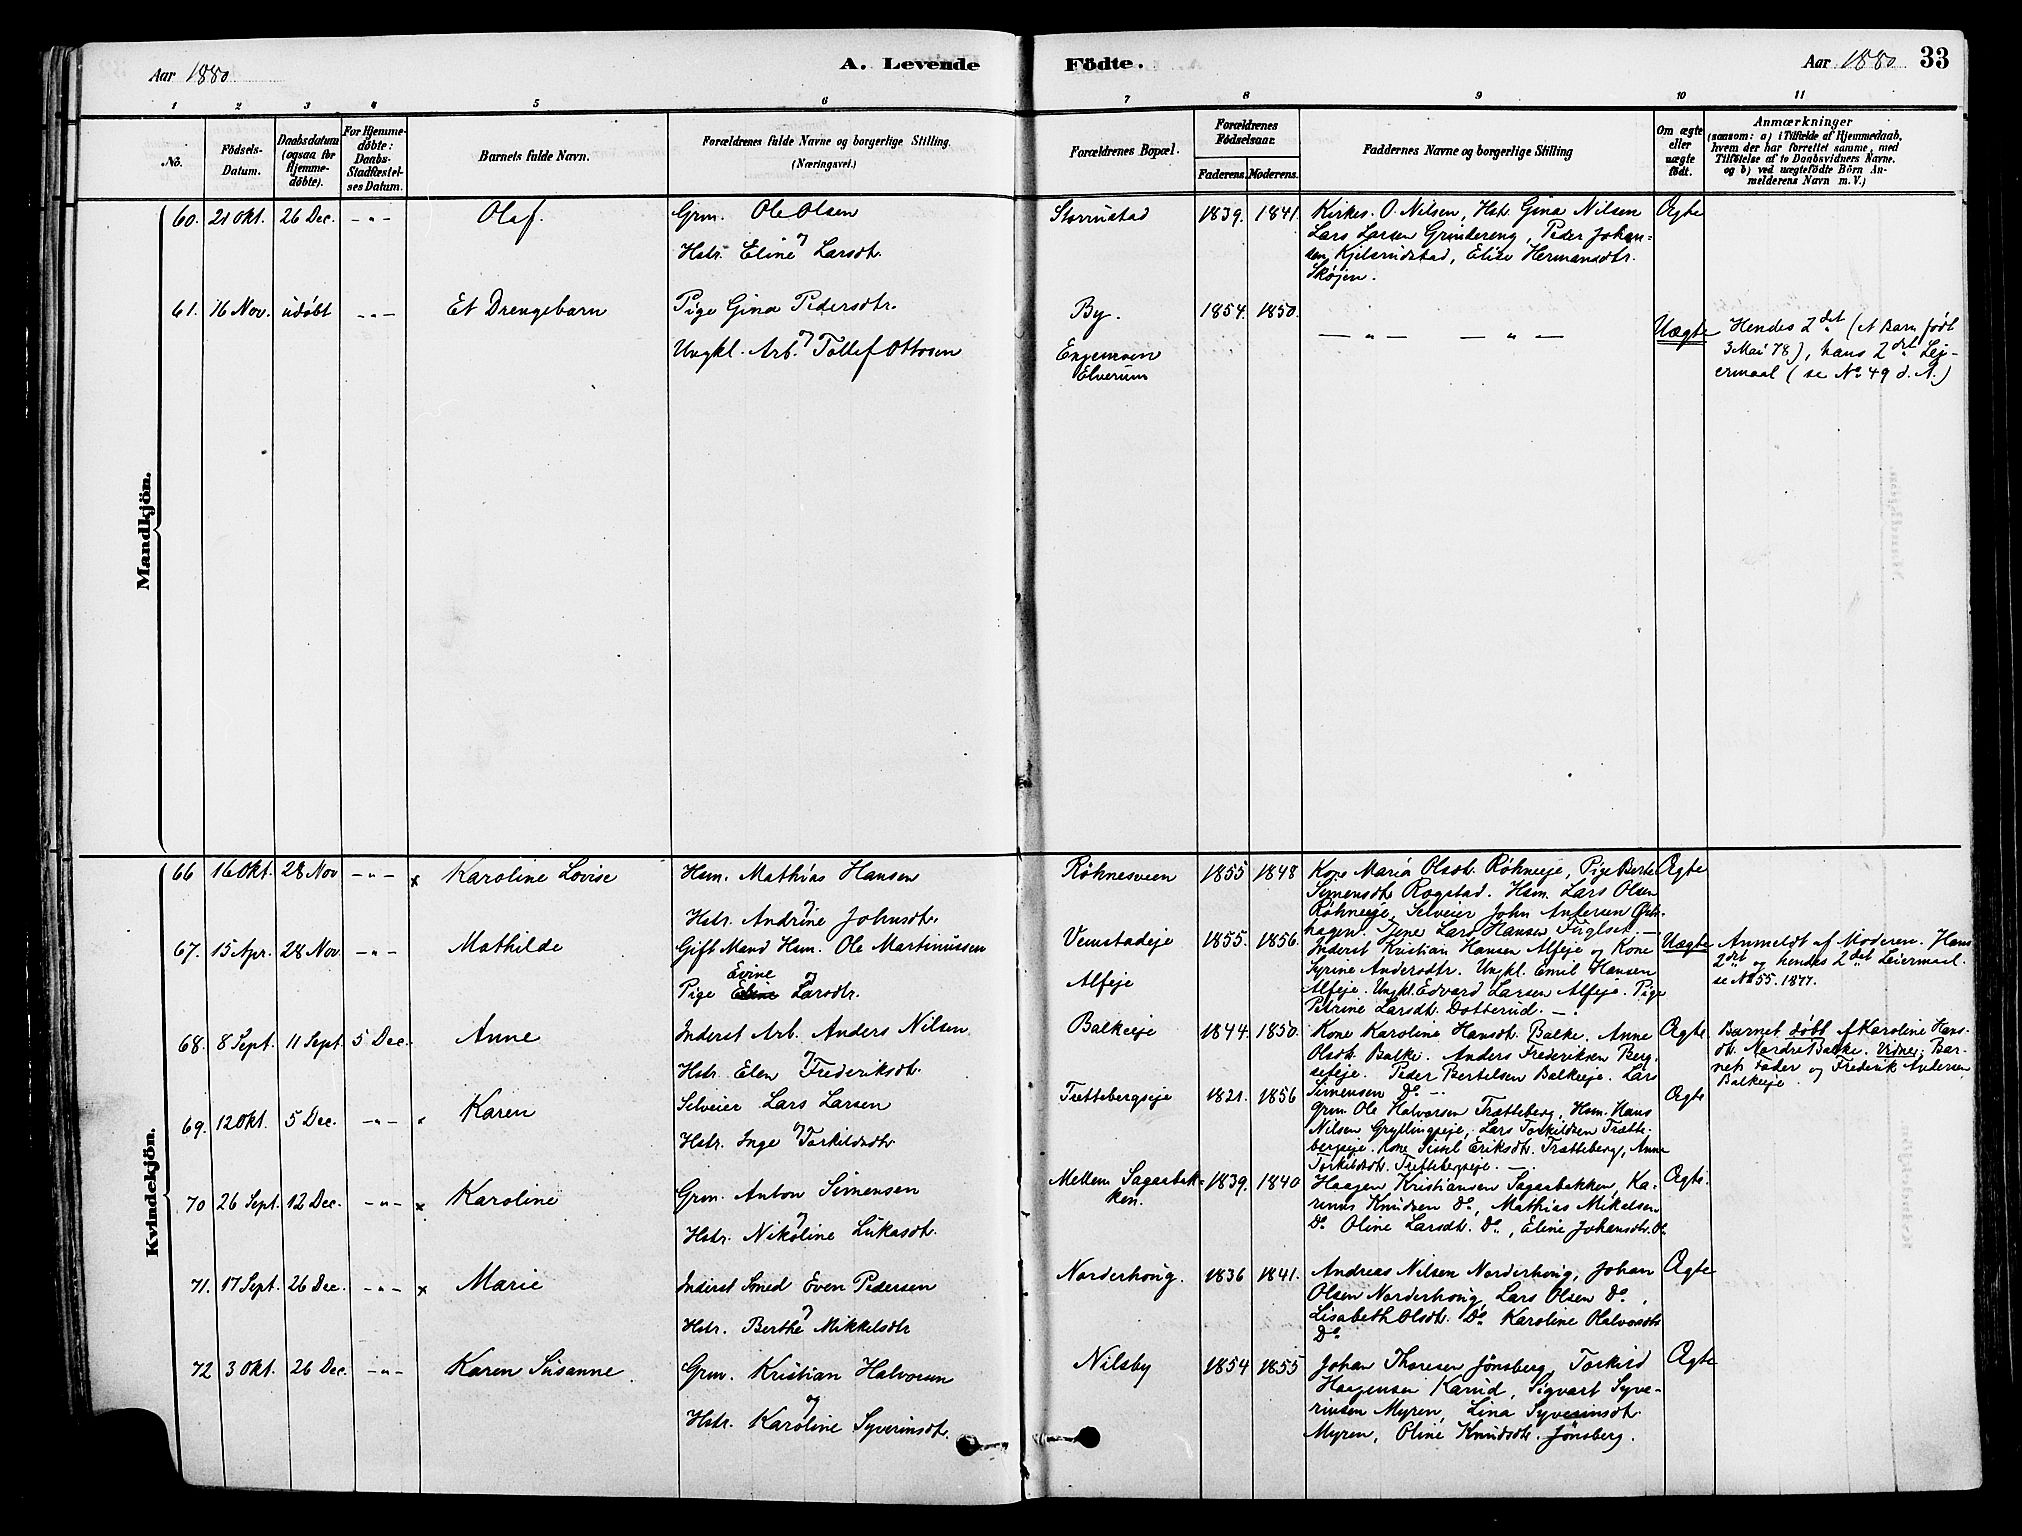 Aar 1880
A. Levende
Födte.
Aar 1880
33
1 2 3 4 5 6 7 8 9 10 11
No.
Födsels-Datum.
Daabsdatum (ogsaa for Hjemme-döbte).
For Hjemme-döbte: Daabs-Stadfæstel-ses Datum.
Barnets fulde Navn.
Forældrenes fulde Navne og borgerlige Stilling.
(Næringsvei.)
Forældrenes Bopæl.
Forældrenes Födselsaar.
Faderens. Moderens.
Faddernes Navne og borgerlige Stilling
Om ægte eller uægte födt.
Anmærkninger
(saasom: a) i Tilfælde af Hjemmedaab,
hvem der har forrettet samme, med
Tilföielse af to Daabsvidners Navne.
og b) ved uægtefödte Börn An-
melderens Navn m. V.)
Mandkjön.
60. 21 Okt. 26 Dec. -"- Olaf. Grm. Ole Olsen
og
Hstr. Eline Larsdt.
Storrustad 1839. 1841.
Kirkes. O. Nilsen, Hst. Gina Nilsen
Lars Larsen Grindereng, Peder Johan-
sen Kjelsrudstad, Elise Hermansdtr.
Skøjen.
Ægte
61. 16 Nov. udøbt -"- Et Drengebarn Pige Gina Pedersdtr.
og
Ungkl. Arb. Tollef Ottosen
By.
Engemoen
Elverum
1854. 1850.
— " — — " —
Uægte
Hendes 2det (et Barn født
3 Mai 78), hans 2det Lej-
ermaal (se No 49 d. A.)
Kvindekjön.
66 16 Okt. 28 Nov -"- x Karoline Lovise Hsm. Mathias Hansen
og
Hstr. Andrine Johnsdt.
Røhnesveen 1855 1848
Kone Maria Olsdt. Røhneeje, Pige Berte
Simensdt Rogstad. Hsm. Lars Olsen
Røhneeje, Selveier John Antersen
hagen. Lars Hansen Fuglset. —
Ægte
67. 15 Apr. 28 Nov -"- Mathilde Gift Mand Hsm. Ole Martinussen
og
Pige Evine Larsdtr.
Vemstadeje
Alfeje
1855. 1856.
Inderst Kristian Hansen Alfeje og Kone
Syrine Andersdtr. Ungkl. Emil Hansen
Alfeje. Ungkl. Edvard Larsen Alfeje. Pige
Petrine Larsdt. Dotterud. —
Uægte
Anmeldt af Moderen. Hans
2det og hendes 2det Leiermaal.
se No 55. 1877.
68. 8 Sept. 11 Sept. 5 Dec. Anne Inderst Arb. Anders Nilsen
og
Hstr. Elen Frederiksdt.
Balkeeje 1844. 1850.
Kone Karoline Hansdt. Balke. Anne
Olsdt. Balke. Anders Frederiksen Berg-
seteje. Peder Bertelsen Balkeeje. Lars
Simensen Do —
Ægte.
Barnet døbt af Karoline Hans-
dt. Nordre Balke. Vidner: Bar-
nets Fader og Frederik Andersen
Balkeeje.
69. 12 Okt. 5 Dec. -"- Karen Selveier Lars Larsen
og
Hstr. Inge Torkildsdt.
Trettebergseje 1821. 1856
Grm. Ole Halvorsen Trætteberg, Hsm. Hans
Nilsen Gryllingseje, Lars Torkildsen Trætte-
bergseje. Kone Sissel Eriksdt. Trætteberg, Anne
Torkildsdt. Trettebergseje. —
Ægte
70 26 Sept. 12 Dec. -"- x Karoline Grm. Anton Simensen
og
Hstr. Nikoline Lukasdt.
Mellem Sagasbak-
ken.
1839. 1840
Haagen Kristiansen Sagasbakken, Ka-
rinus Knudsen Do, Mathias Mikelsen
Do Oline Larsdt. Do, Eline Johansdt. Do
Ægte.
71. 17 Sept. 26 Dec. -"- x Marie Inderst Smed Even Pedersen
og
Hstr. Berthe Mikkelsdtr
Norderhoug. 1836 1841.
Andreas Nilsen Norderhoug, Johan
Olsen Norderhoug, Lars Olsen Do,
Lisabeth Olsdt. Do Karoline Halvorsdt
Do
Ægte
72 3 Okt. 26 Dec. -"- Karen Susanne. Grm. Kristian Halvorsen
og
Hstr. Karoline Syverinsdt.
Nilsby 1854 1855
Johan Thoresen Jønsberg, Torkild
Haagensen Karud, Sigvart Syve-
rinsen Myren, Lina Syverinsdt.
Myren, Oline Knudsdt. Jønsberg.
Ægte